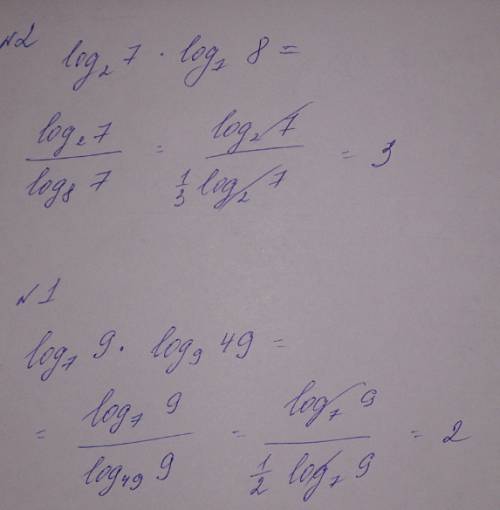 №2
log₂ 7 · log₇ 8 =
log₂ 7 / log₈ 7 = log₂ 7 / ⅓ log₂ 7 = 3
№1
log₇ 9 · log₉ 49 =
= log₇ 9 / log₄₉ 9 = log₇ 9 / ½ log₇ 9 = 2